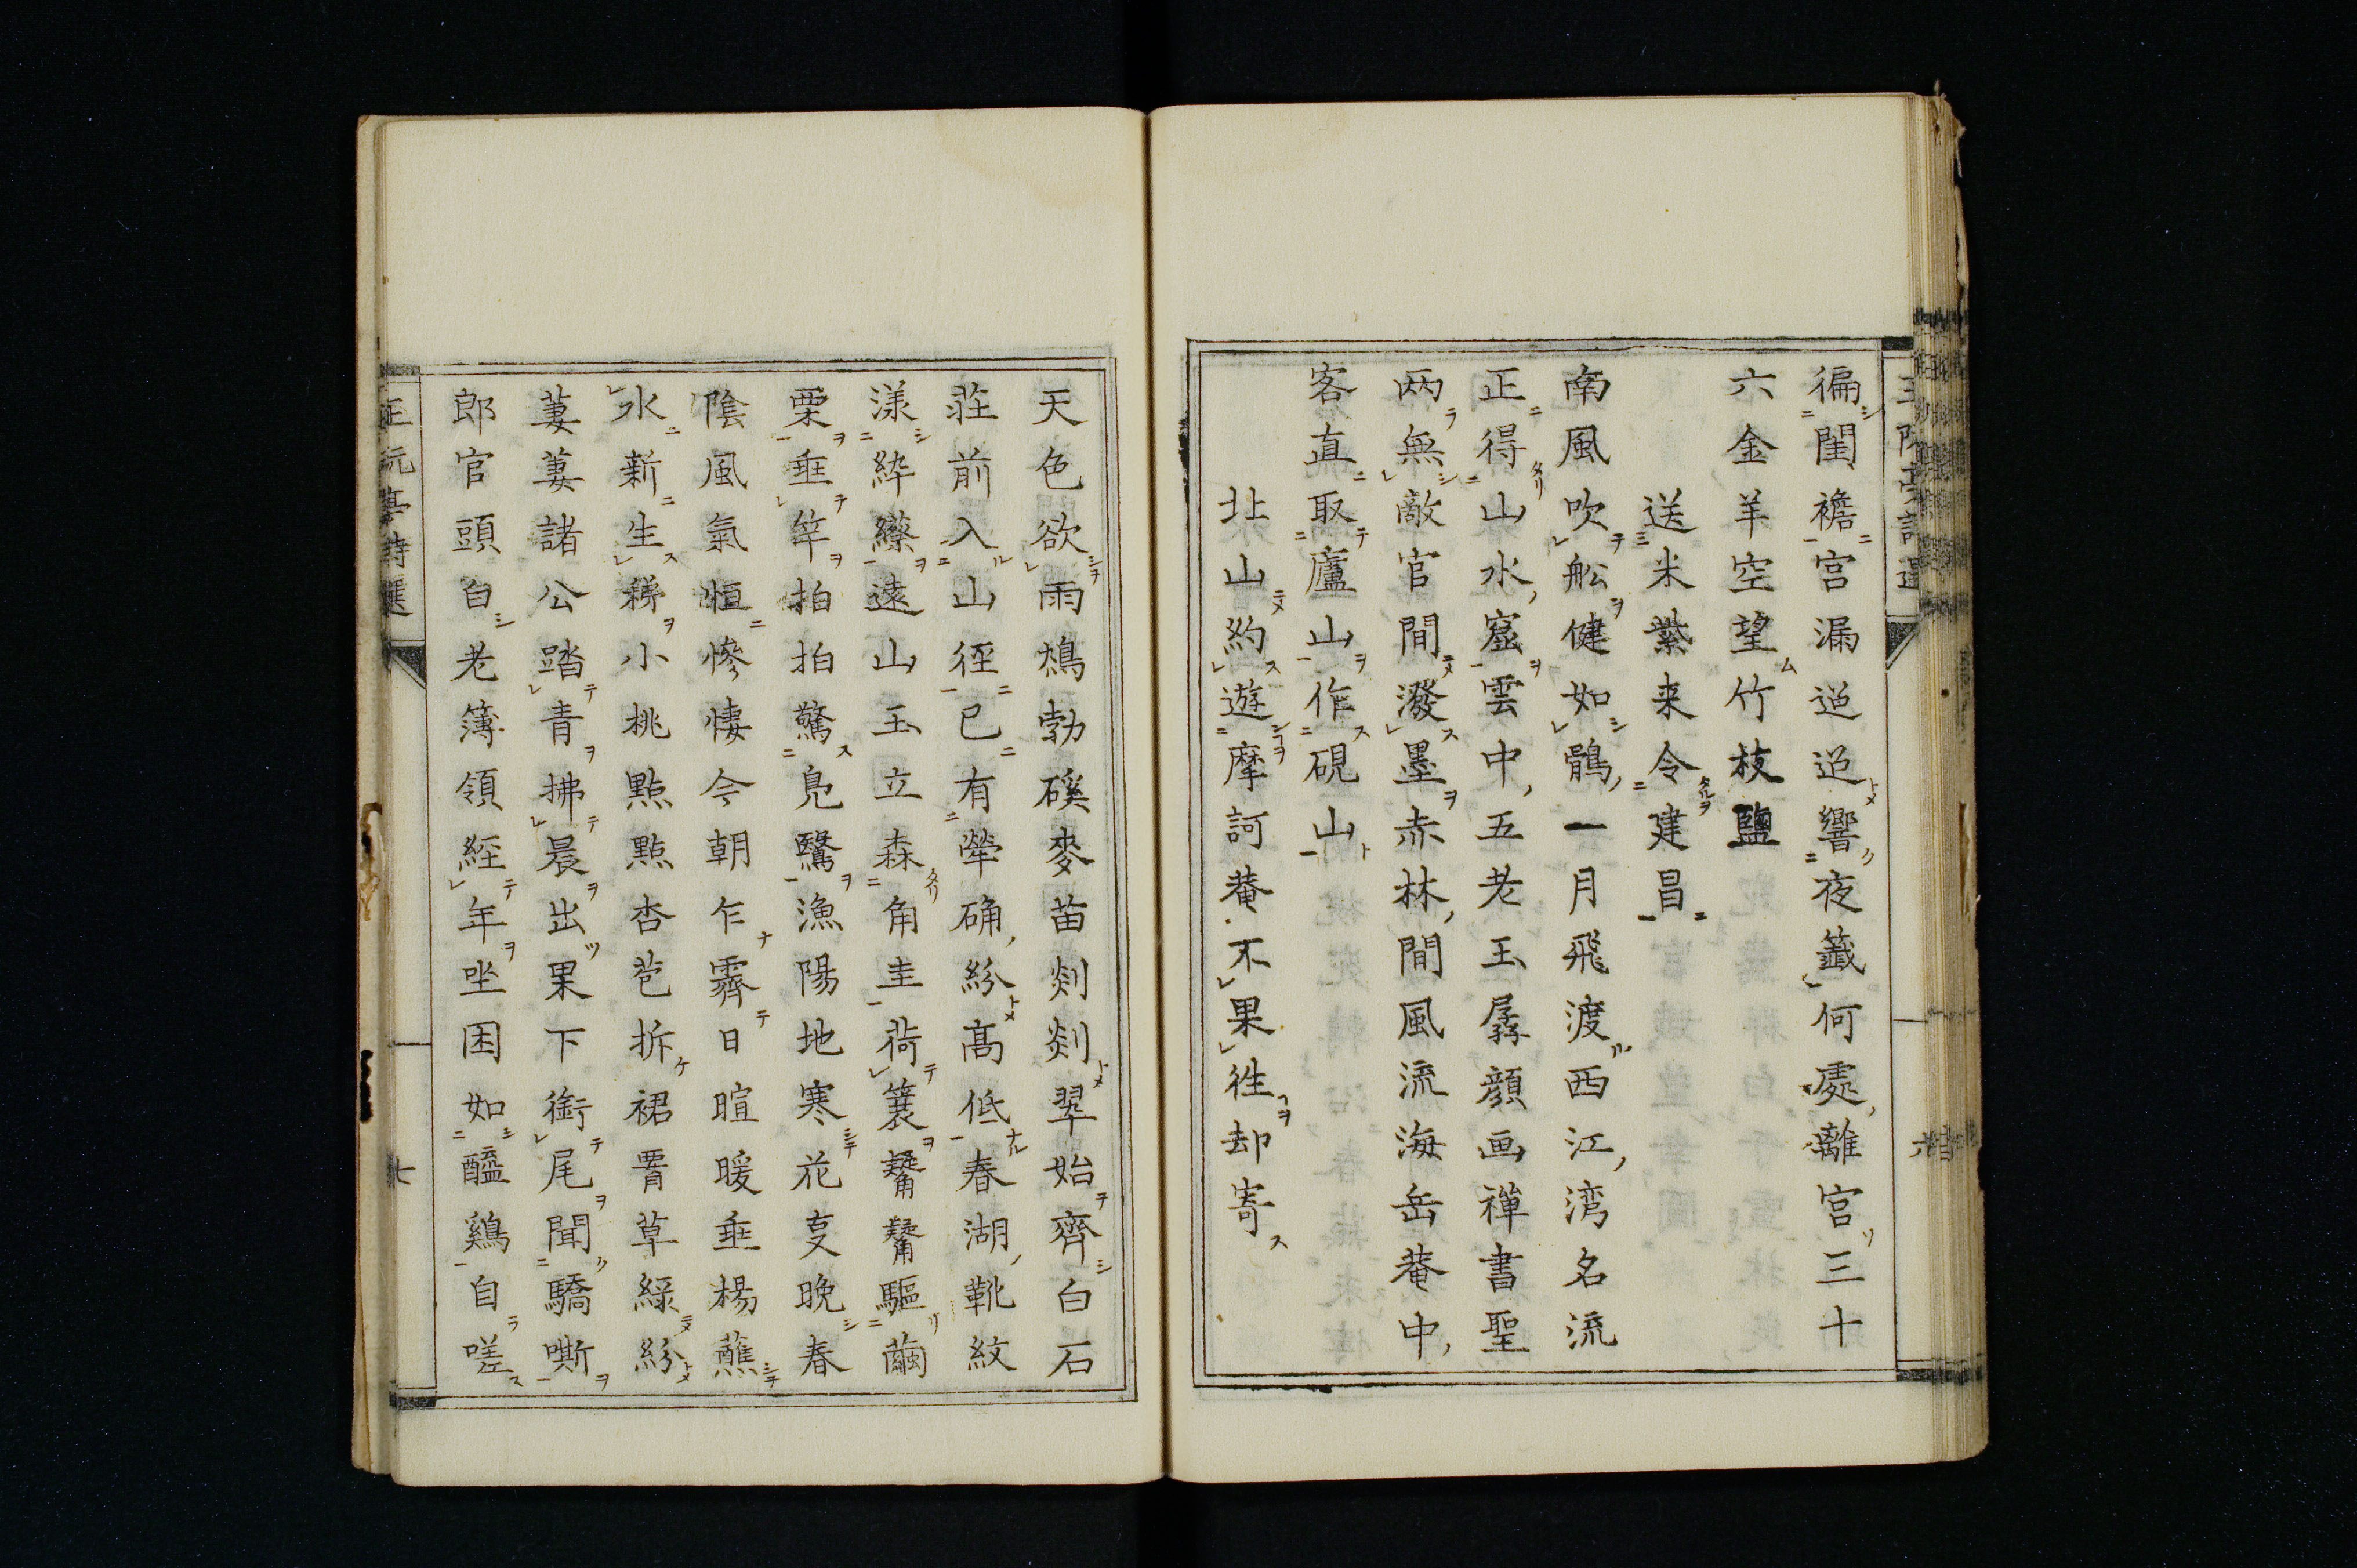 徧閨襜宮漏迢迢響夜籤何處離宮三十
六金羊空望竹枝鹽
送米紫来令建昌
南風吹舩健如鶻一月飛渡西江湾名流
正得山水窟雲中五老玉孱顔画禅書聖
兩無敵官間潑墨赤林間風流海岳菴中
客直取廬山作硯山
北山約遊摩訶菴不果徃却寄
天色欲雨鴆勃磎麥苗剡剡翠始齊白石
荘前入山徑已有犖确紛髙低春湖靴紋
漾紣繰遠山玉立森角圭荷簑觺觺驅繭
栗垂竿拍拍驚鳧鷖漁陽地寒花叓晩春
陰風氣恒慘悽今朝乍霽日暄暖垂楊蘸
水新生稊小桃點點杏苞拆裙罥草緑紛
萋萋諸公踏青拂晨出果下銜尾聞驕嘶
郎官頭白老簿領経年坐困如醯鷄自嗟
王阮亭詩選
七